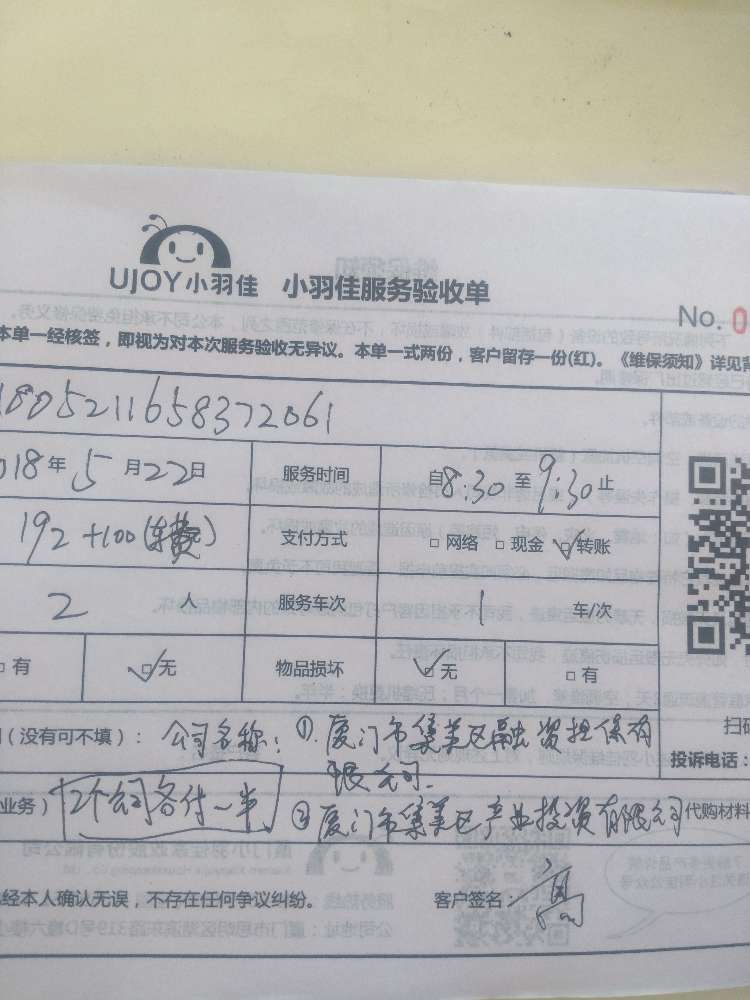 UJOY小羽佳 小羽佳服务验收单
No. 0
本单一经核签，即视为对本次服务验收无异议。本单一式两份，客户留存一份(红)。《维保须知》详见背
1805211658372061
018年5月22日 服务时间 自8:30至9:30止
192+100(车费) 支付方式 □ 网络 □ 现金 ☑转账
2 人 服务车次 1 车/次
□ 有 ☑无 物品损坏 ☑无 □ 有
(没有可不填)： 公司名称：①.厦门市集美区融资担保有
限公司.
扫码
投诉电话：
业务) 2个公司各付一半 ②厦门市集美区产业投资有限公司 代购材料
经本人确认无误，不存在任何争议纠纷。 客户签名：高